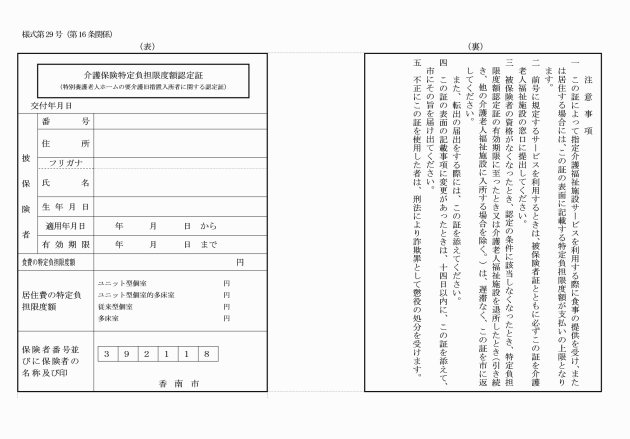 様式第29号（第16条関係）
（表）
介護保険特定負担限度額認定証
（特別養護老人ホームの要介護旧措置入所者に関する認定証）
交付年月日
被保険者
番号
住所
フリガナ
氏名
生年月日
適用年月日
年 月 日 から
有効期限
年 月 日 まで
食費の特定負担限度額
円
居住費の特定負
担限度額
ユニット型個室 円
ユニット型個室的多床室 円
従来型個室 円
多床室 円
保険者番号並
びに保険者の
名称及び印
3 9 2 1 1 8
香南市
（裏）
注意事項
一 この証によって指定介護福祉施設サービスを利用する際に食事の提供を受け、また
は居住する場合には、この証の表面に記載する特定負担限度額が支払いの上限となり
ます。
二 前号に規定するサービスを利用するときは、被保険者証とともに必ずこの証を介護
老人福祉施設の窓口に提出してください。
三 被保険者の資格がなくなったとき、認定の条件に該当しなくなったとき、特定負担
限度額認定証の有効期限に至ったとき又は介護老人福祉施設を退所したとき（引き続
き、他の介護老人福祉施設に入所する場合を除く。）は、遅滞なく、この証を市に返
してください。
また、転出の届出をする際には、この証を添えてください。
四 この証の表面の記載事項に変更があったときは、十四日以内に、この証を添えて、
市にその旨を届け出てください。
五 不正にこの証を使用した者は、刑法により詐欺罪として懲役の処分を受けます。